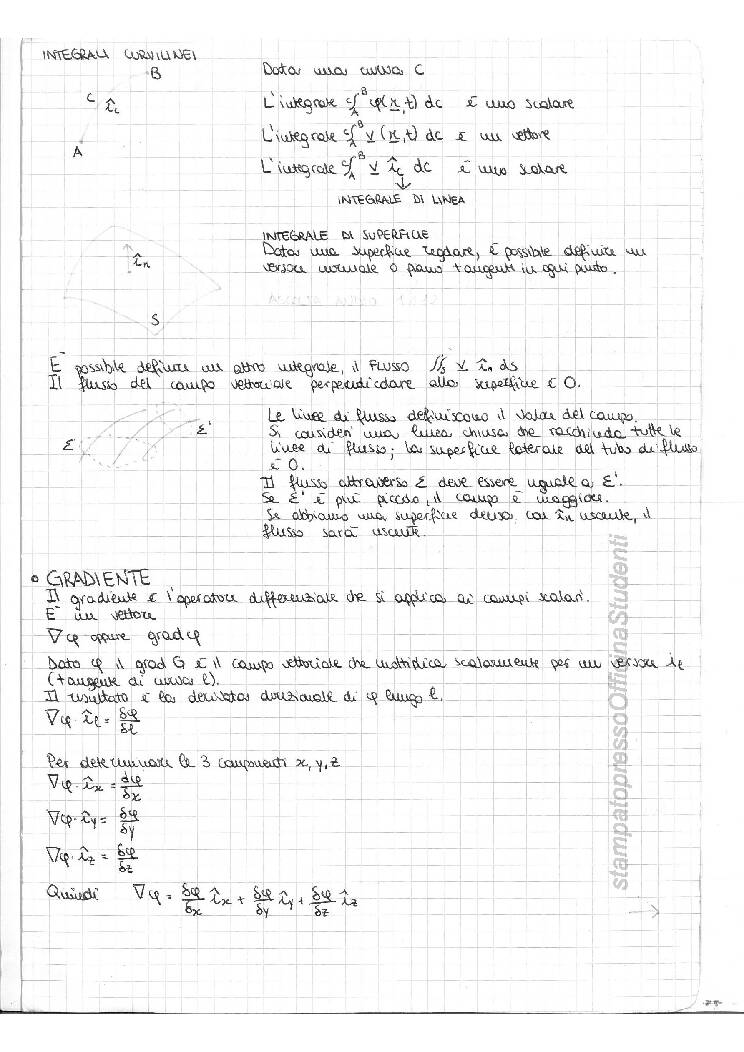 INTEGRALI CURVILINEI
B
C
î_c
A
Data una curva C
L'integrale ∫_A^B φ(r,t) dc è uno scalare
L'integrale ∫_A^B v (r,t) dc è un vettore
L'integrale ∫_A^B v î_c dc è uno scalare
INTEGRALE DI LINEA
î_n
S
INTEGRALE DI SUPERFICIE
Data una superficie regolare, è possibile definire un
versore normale o piano tangenti in ogni punto.
È possibile definire un altro integrale, il FLUSSO ∬_S v î_n ds
Il flusso del campo vettoriale perpendicolare alla superficie è 0.
Σ
Σ'
Le linee di flusso definiscono il valore del campo.
Si consideri una linea chiusa che racchiuda tutte le
linee di flusso; la superficie laterale del tubo di flusso
è 0.
Il flusso attraverso Σ deve essere uguale a Σ'.
Se Σ' è più piccolo, il campo è maggiore.
Se abbiamo una superficie chiusa con î_n uscente, il
flusso sarà uscente.
• GRADIENTE
Il gradiente è l'operatore differenziale che si applica ai campi scalari.
È un vettore
∇φ oppure grad φ
Dato φ il grad G è il campo vettoriale che moltiplica scalarmente per un versore i_ℓ
(tangente di curva ℓ).
Il risultato è la derivata direzionale di φ lungo ℓ.
∇φ · î_ℓ = δφ/δℓ
Per determinare le 3 componenti x, y, z
∇φ · î_x = dφ/δx
∇φ · î_y = δφ/δy
∇φ · î_z = δφ/δz
Quindi ∇φ = δφ/δx î_x + δφ/δy î_y + δφ/δz î_z
stampatopressoOfficinaStudenti